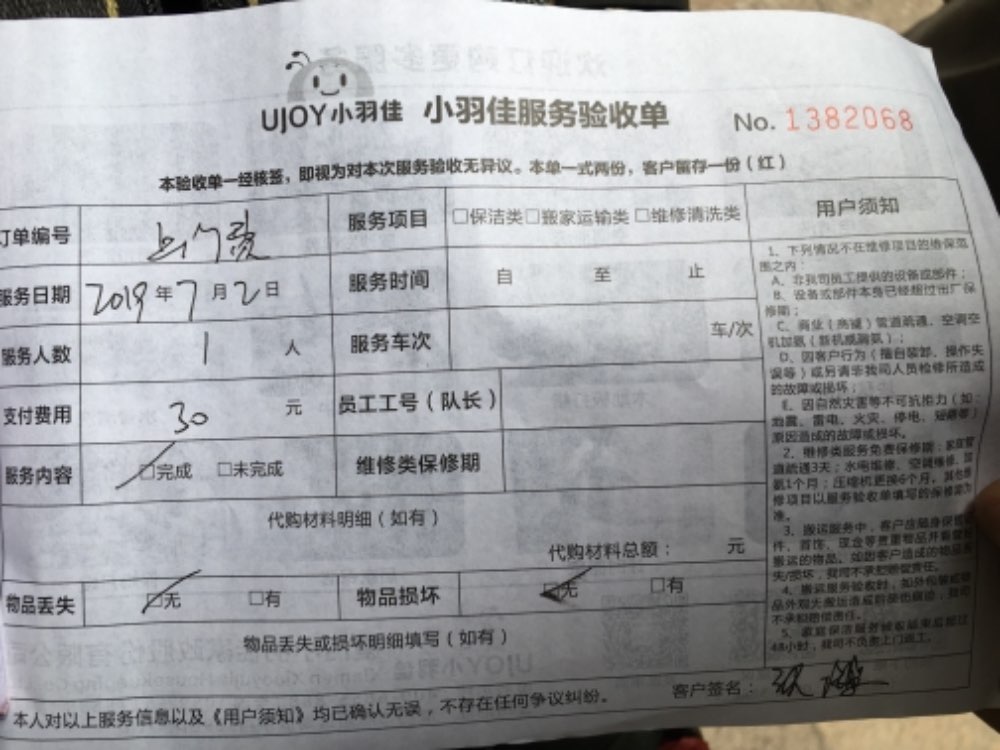 UJOY小羽佳 小羽佳服务验收单 No. 1382068
本验收单一经核签，即视为对本次服务验收无异议。本单一式两份，客户留存一份（红）
订单编号 上门费 服务项目 □保洁类□搬家运输类□维修清洗类 用户须知
服务日期 2019年7月2日 服务时间 自 至 止
服务人数 1 人 服务车次 车/次
支付费用 30 元 员工工号（队长）
服务内容 □完成 □未完成 维修类保修期
代购材料明细（如有）
代购材料总额： 元
物品丢失 □无 □有 物品损坏 □无 □有
物品丢失或损坏明细填写（如有）
客户签名：
本人对以上服务信息以及《用户须知》均已确认无误，不存在任何争议纠纷。
1、下列情况不在维修项目的维保范
围之内：
A、非我司员工提供的设备或部件；
B、设备或部件本身已经超过出厂保
修期；
C、商业（商铺）管道疏通、空调空
机加氨（新机或漏氨）；
D、因客户行为（擅自装卸、操作失
误等）或另请非我司人员检修所造成
的故障或损坏；
E、因自然灾害等不可抗拒力（如：
地震、雷电、火灾、停电、短路等）
原因造成的故障或损坏。
2、维修类服务免费保修期：家庭管
道疏通3天；水电维修、空调维修、加
氨1个月；压缩机更换6个月，其他维
修项目以服务验收单填写的保修期为
准。
3、搬运服务中，客户应随身保管证
件、首饰、现金等贵重物品并
搬运的物品，如因客户造成的物品丢
失/损坏，我司不承担赔偿责任。
4、搬运服务验收时，如外包装或物
品外观无搬运造成的
不承担赔偿责任。
5、家庭保洁服务验收结束后超过
48小时，我司不负责上门返工。